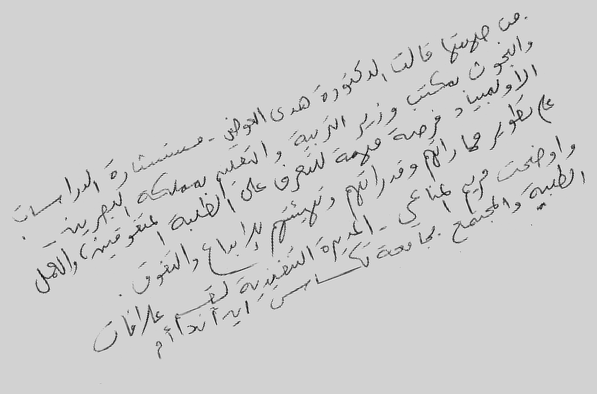 من جهتها قالت الدكتورة هدى العوضي - مستشارة الدراسات
والبحوث بمكتب وزير التربية والتعليم بمملكة البحرين -
الأولمبياد فرصة مهمة للتعرف على الطلبة المتفوقين، والعمل
على تطوير مهاراتهم وقدراتهم وتهيئتهم للإبداع والتفوق.
وأوضحت مريم المناعي - المديرة التنفيذية لقسم علاقات
الطلبة والمجتمع بجامعة تكساس ايه آند أم